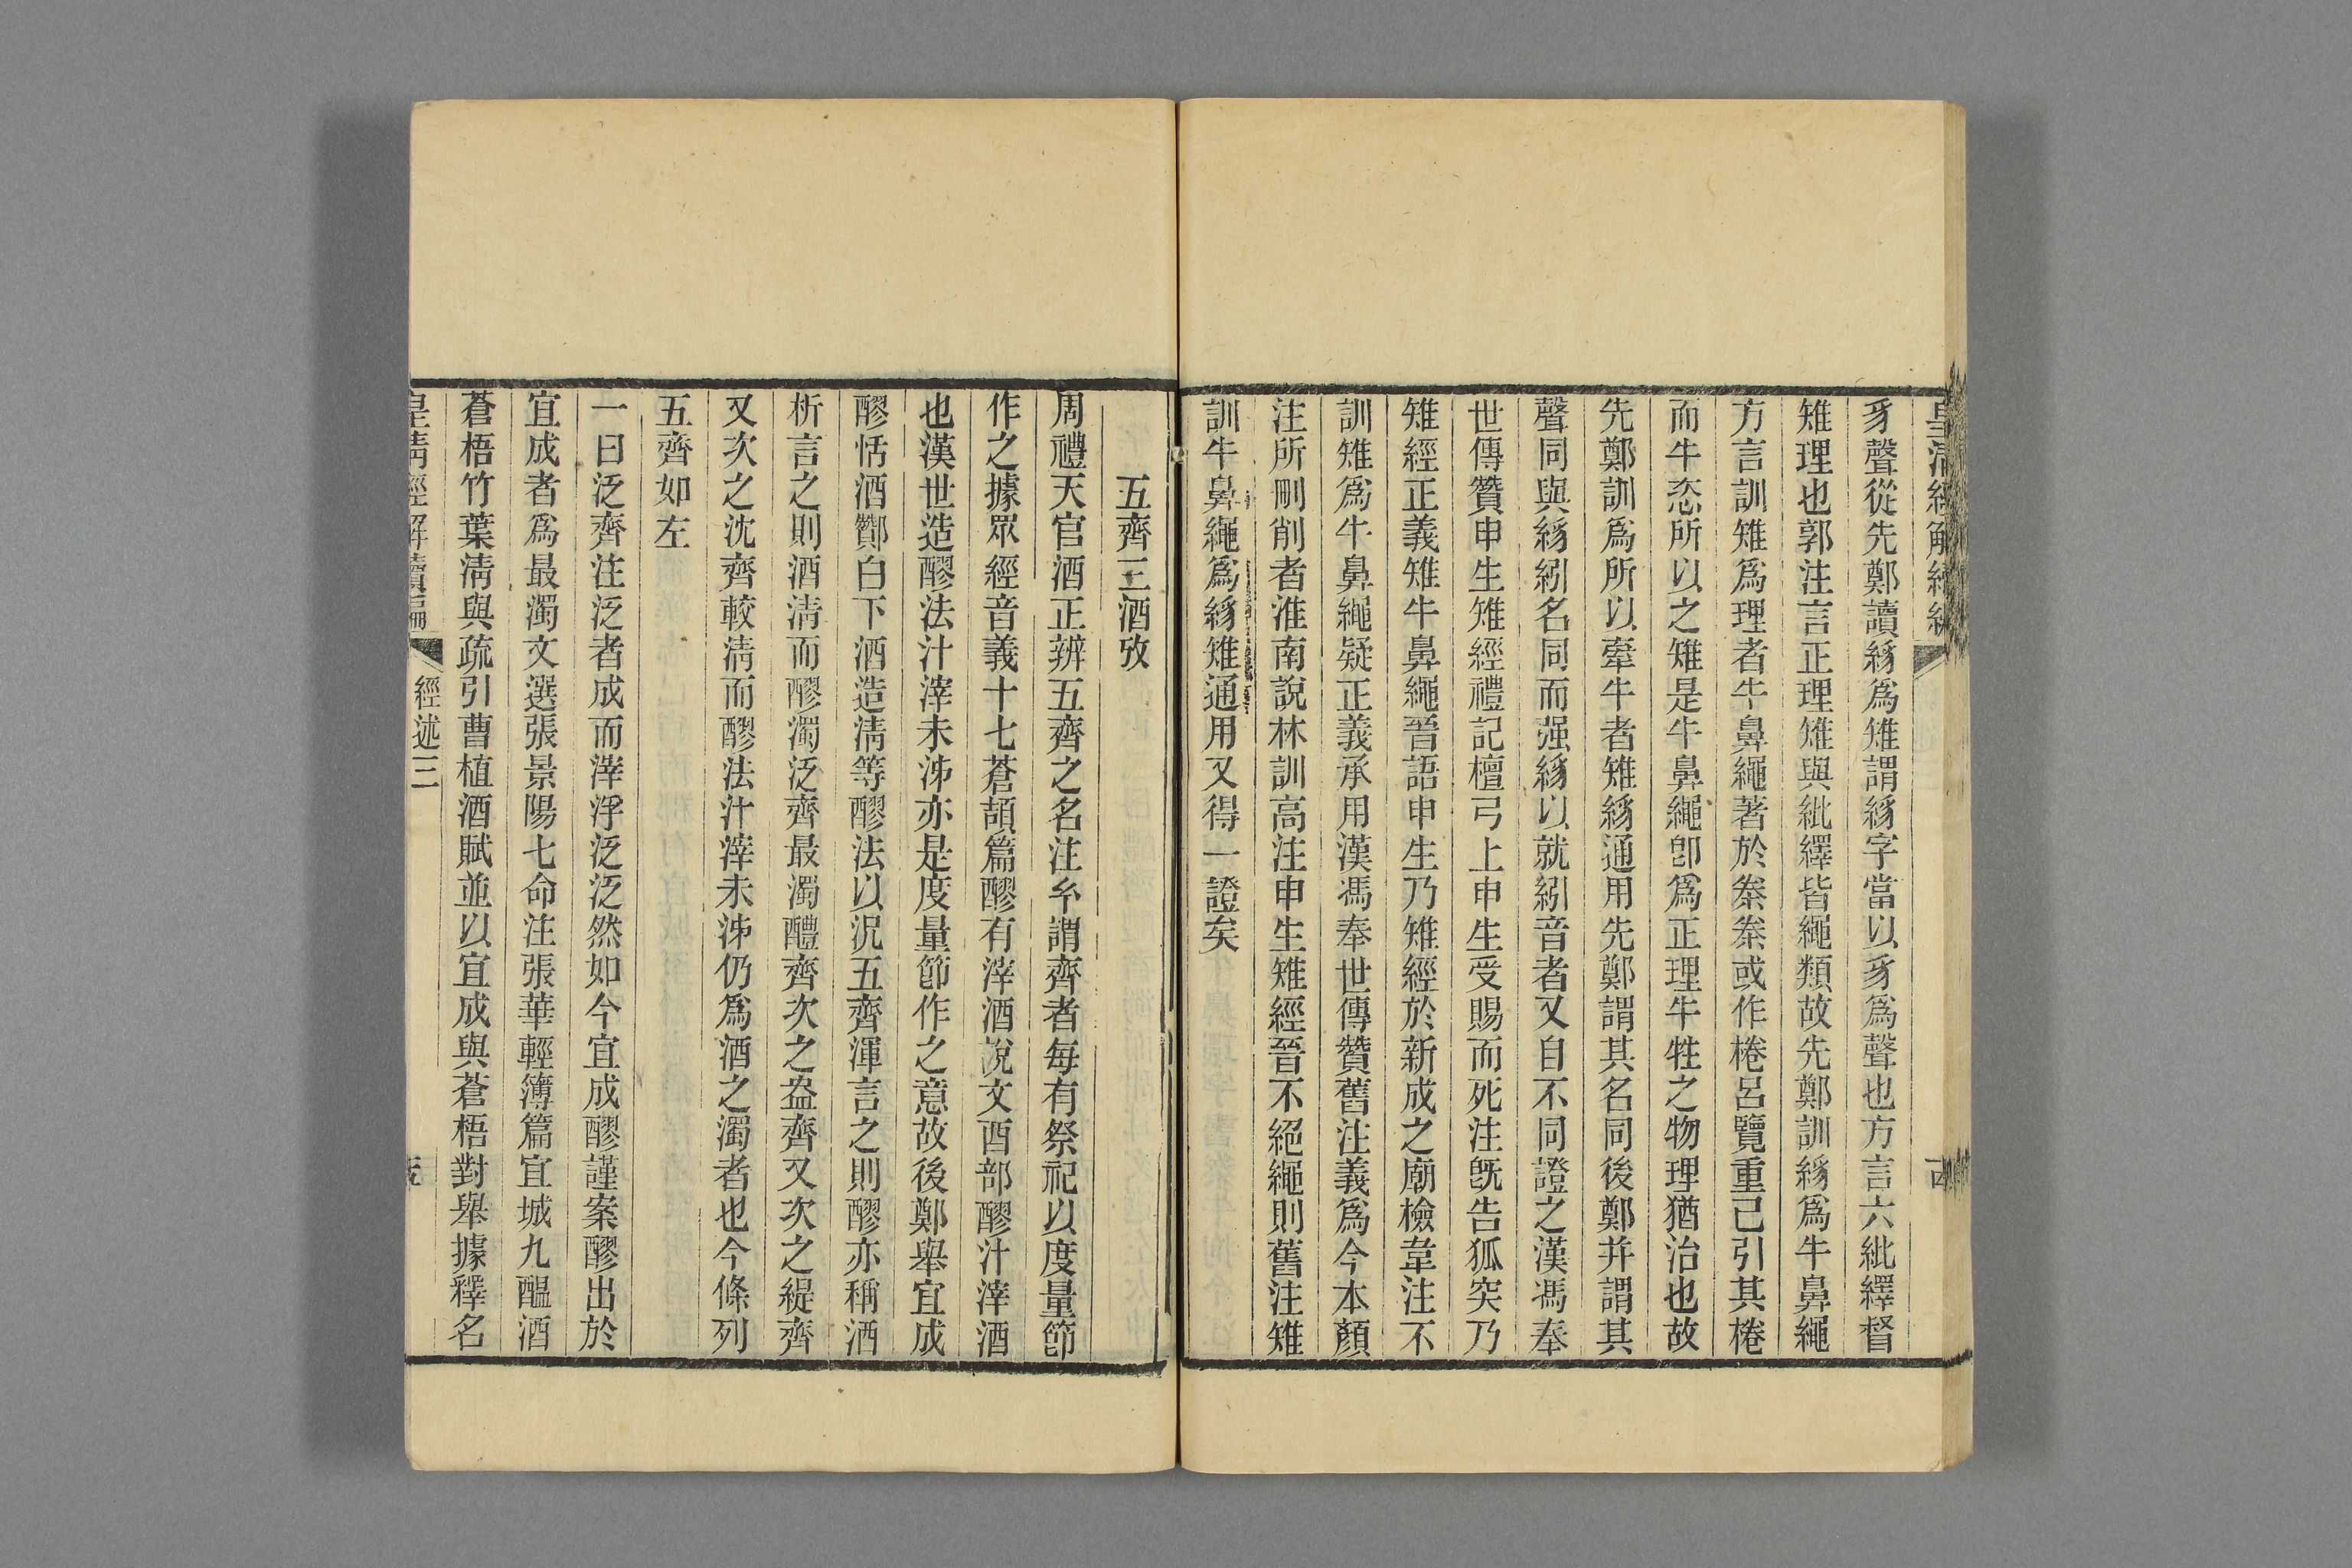 皇淸經解續編
豸聲從先鄭讀緣爲雉謂緣字當以豸爲聲也方言六紕繹督
雉理也郭注言正理雉與紕繹皆繩類故先鄭訓緣爲牛鼻繩
方言訓雉爲理者牛鼻繩著於桊桊或作棬呂覽重己引其棬
而牛恣所以之雉是牛鼻繩卽爲正理牛牲之物理猶治也故
先鄭訓爲所以牽牛者雉緣通用先鄭謂其名同後鄭幷謂其
聲同與緣紖名同而强緣以就紖音者又自不同證之漢馮奉
世傳贊申生雉經禮記檀弓上申生受賜而死注旣告狐突乃
雉經正義雉牛鼻繩晉語申生乃雉經於新成之廟檢韋注不
訓雉爲牛鼻繩疑正義承用漢馮奉世傳贊舊注義爲今本顏
注所刪削者淮南說林訓高注申生雉經晉不絕繩則舊注雉
訓牛鼻繩爲緣雉通用又得一證矣
五齊三酒攷
周禮天官酒正辨五齊之名注今謂齊者每有祭祀以度量節
作之據眾經音義十七蒼頡篇醪有滓酒說文酉部醪汁滓酒
也漢世造醪法汁滓未泲亦是度量節作之意故後鄭舉宜成
醪恬酒酇白下酒造淸等醪法以況五齊渾言之則醪亦稱酒
析言之則酒淸而醪濁泛齊最濁醴齊次之盎齊又次之緹齊
又次之沈齊較淸而醪法汁滓未泲仍爲酒之濁者也今條列
五齊如左
一曰泛齊注泛者成而滓浮泛泛然如今宜成醪謹案醪出於
宜成者爲最濁文選張景陽七命注張華輕簿篇宜城九醞酒
蒼梧竹葉淸與疏引曹植酒賦並以宜成與蒼梧對舉據釋名
皇淸經解續編
經述三